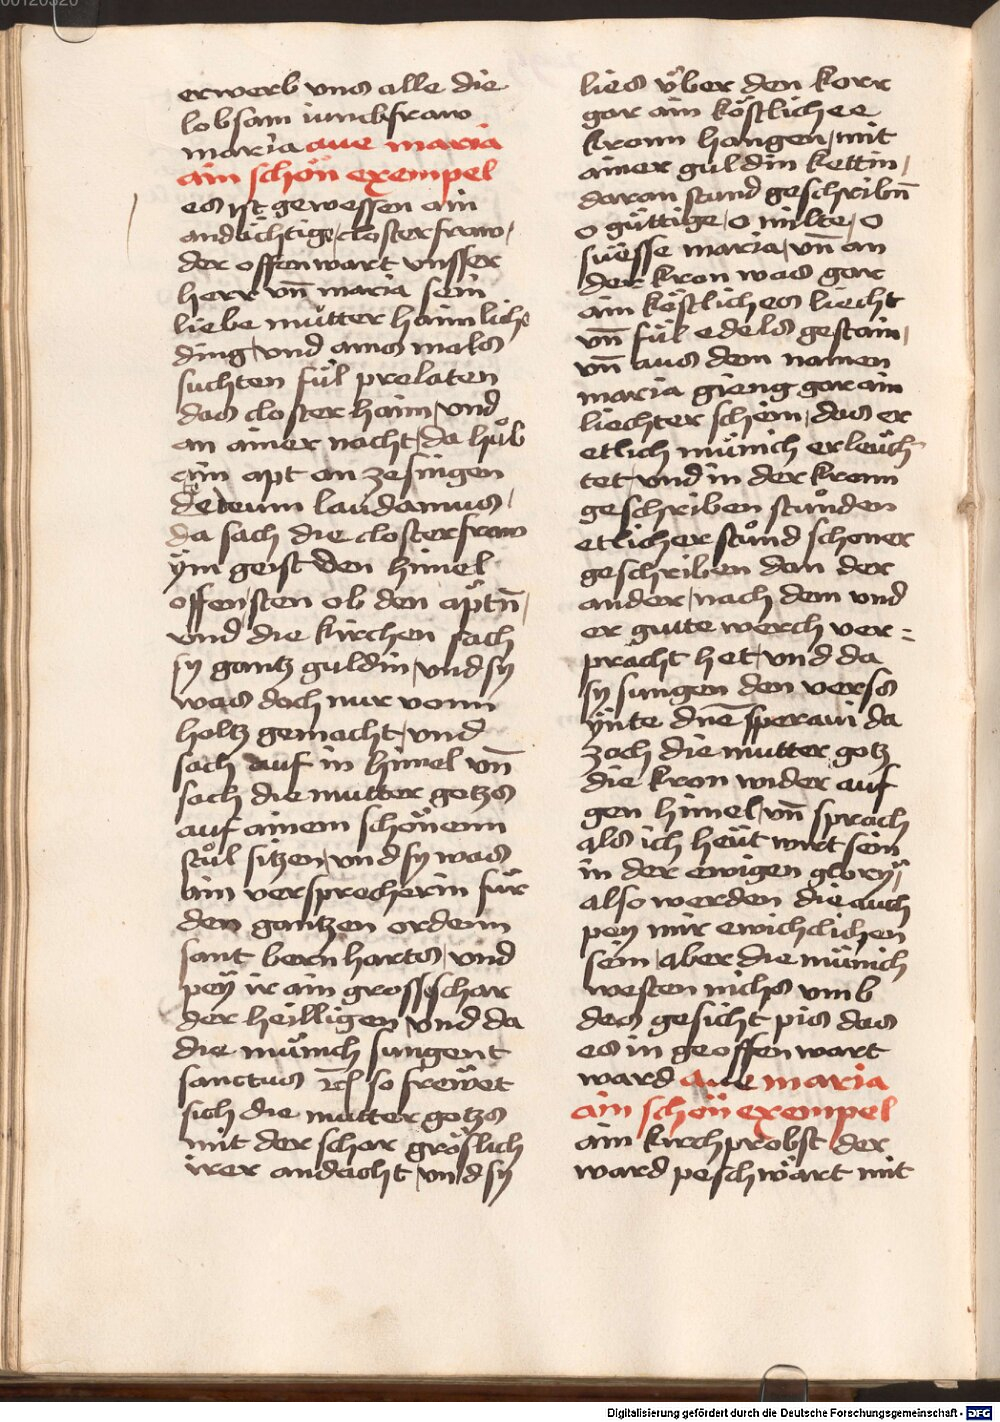 erwerb vns alle die
lobsam iunckfraw
maria aue maria
ain schön exempel
es ist gewessen ain
andächtige closterfraw,
der offenwart vnsser
herr vn̄ maria sein
liebe mütter haimliche
ding, vnd ains mals
suchten fül prelaten
das closter haim, vnd
an ainer nacht, da hůb
ain apt an zesingen
dedeum laudamus,
da sach die closterfraw
ÿm geist den himel
offensten ob den äptn̄,
vnd die kirchen sach
sy gantz guldin, vnd sy
was doch nur vonn
holtz gemacht, vnd
sach auf in himel vn̄
sach die mutter gotzs
auf ainem schönenn
stůl sitzen, vnd sy was
ain versprecherin für
den gantzen ordenn
sant bernhartes, vnd
peÿ ir ain gross schar
der heilligen, vnd da
die münich sungent
sanctus so frewet
sich die mutter gotzs
mit der schar gröslich
irer andacht, vnd sy
lies über den korr
gar ain köstlichee
kronn hangen, mit
ainer guldin kettin,
daran stund geschribn̄
o güttige, o milte, o
suesse maria, vn̄ an
der kron was gar
ain köstliches liecht
vn̄ fül edels gestain,
vn̄ aus dem namen
maria gieng gar ain
liechter schein, das er
etlich münich erleüch-
tet, vnd in der kronn
geschriben stůnden
etlicher stůnd schoner
geschriben dan der
ander, nach dem vnd
er gutte werch ver-
pracht het, vnd da
sy sungen den verss
ÿnte dn̄e speraui da
zoch die mutter gotz
die kron wider auf
gen himel, vn̄ sprach
als ich heüt wirt sein
in der ewigen gloryÿ,
also werden die auch
pey mir ewichclichen
sein, aber die münich
westen nichs vmb
des gesicht pis das
es in geoffenwart
ward aue maria
ain schön exempel
ain kirchprobst der
ward peschwärt mit
Digitalisierung gefördert durch die Deutsche Forschungsgemeinschaft - DFG